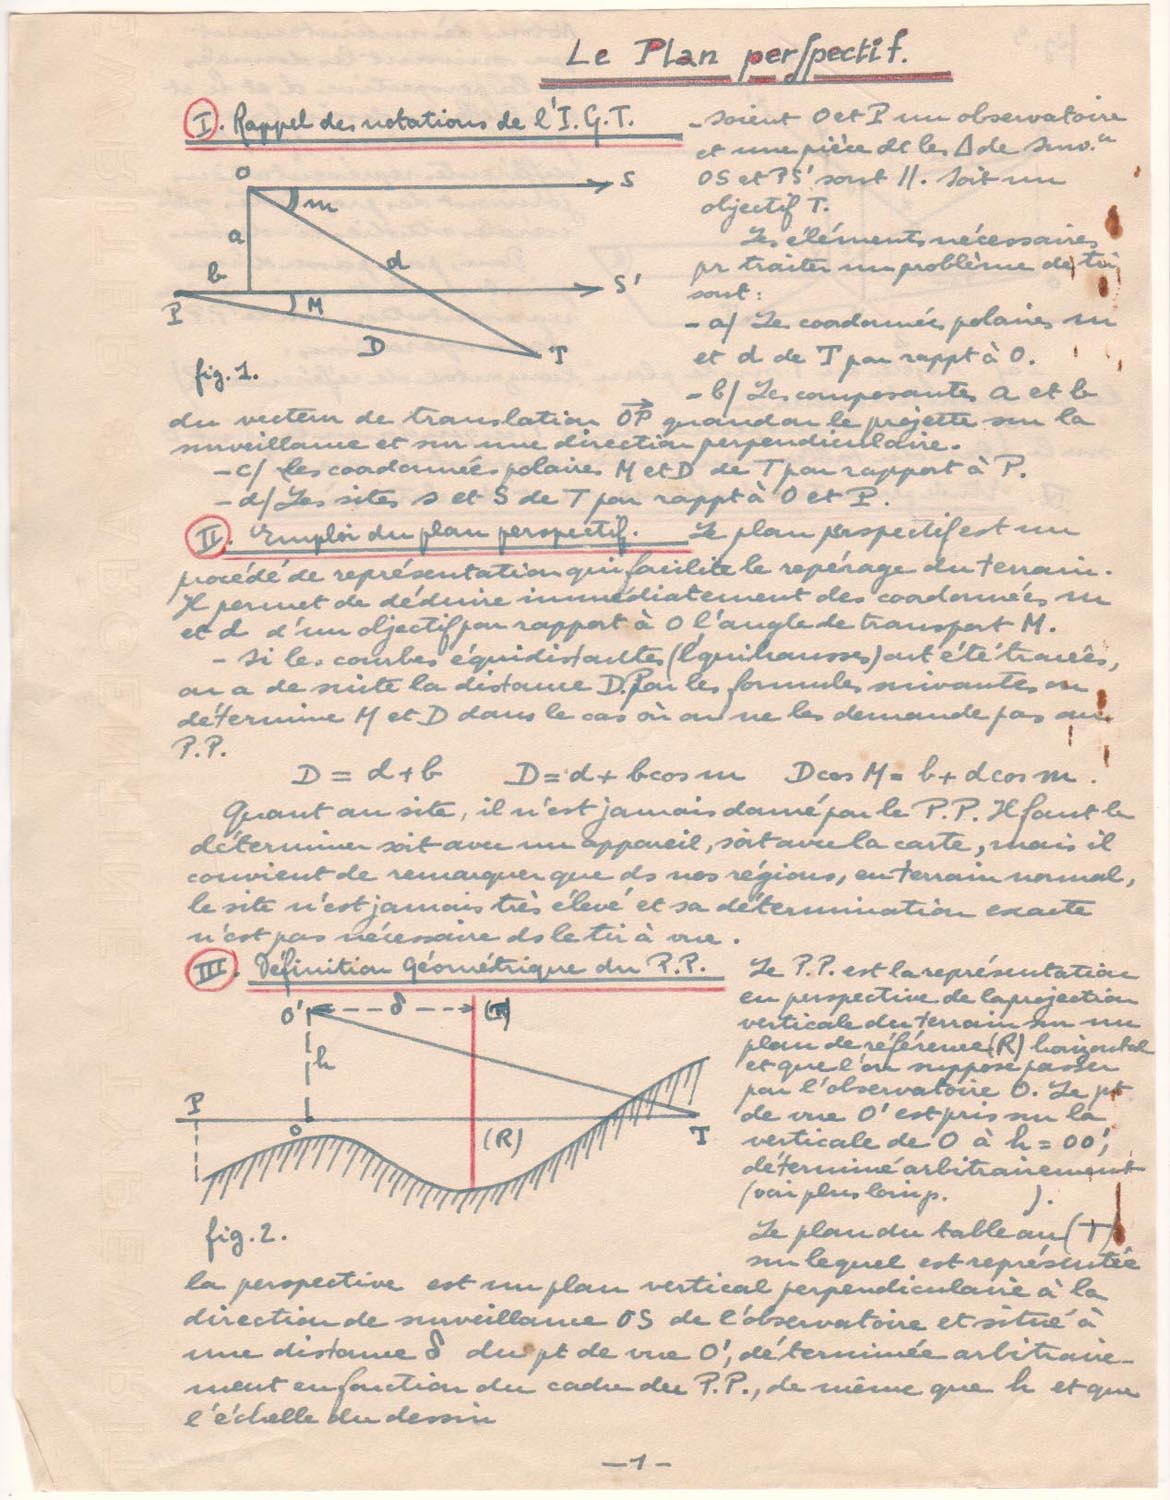 Le Plan perspectif.
I. Rappel des notations de l'I.G.T.
- Soient O et P un observatoire
et une pièce dt les Δ de Surv.ce
OS et PS' sont //. Soit un
objectif T.
Les éléments nécessaires
pr traiter un problème de tir
sont :
- a/ Les coordonnées polaires m
et d de T par rappt à O.
- b/ Les composantes a et b
O
S
m
a
d
b
S'
P
M
D
T
fig. 1.
du vecteur de translation OP quand on le projette sur la
surveillance et sur une direction perpendiculaire.
- c/ Les coordonnées polaires M et D de T par rapport à P.
- d/ Les sites s et S de T par rappt à O et P.
II. Emploi du plan perspectif. Le plan perspectif est un
procédé de représentation qui facilite le repérage du terrain.
Il permet de déduire immédiatement des coordonnées m
et d d'un objectif par rapport à O l'angle de transport M.
- Si les courbes équidistantes (l'équihausses) ont été tracées,
on a de suite la distance D. Par les formules suivantes on
détermine M et D dans le cas où on ne les demande pas au
P.P.
D = d + b D = d + b cos m D cos M = b + d cos m .
Quant au site, il n'est jamais donné par le P.P. Il faut le
déterminer soit avec un appareil, soit avec la carte, mais il
convient de remarquer que ds nos régions, en terrain normal,
le site n'est jamais très élevé et sa détermination exacte
n'est pas nécessaire ds le tir à vue .
III. Définition Géométrique du P.P.
Le P.P. est la représentation
en perspective de la projection
verticale du terrain sur un
plan de référence (R) horizontal
et que l'on suppose passer
par l'observatoire O. Le pt
de vue O' est pris sur la
verticale de O à h = OO',
déterminé arbitrairement
(voir plus loin p. ).
Le plan du tableau (T)
sur lequel est représentée
O'
δ
(T)
h
P
O
(R)
T
fig. 2.
la perspective est un plan vertical perpendiculaire à la
direction de surveillance OS de l'observatoire et situé à
une distance δ du pt de vue O', déterminée arbitraire-
ment en fonction du cadre du P.P., de même que h et que
l'échelle du dessin
- 1 -